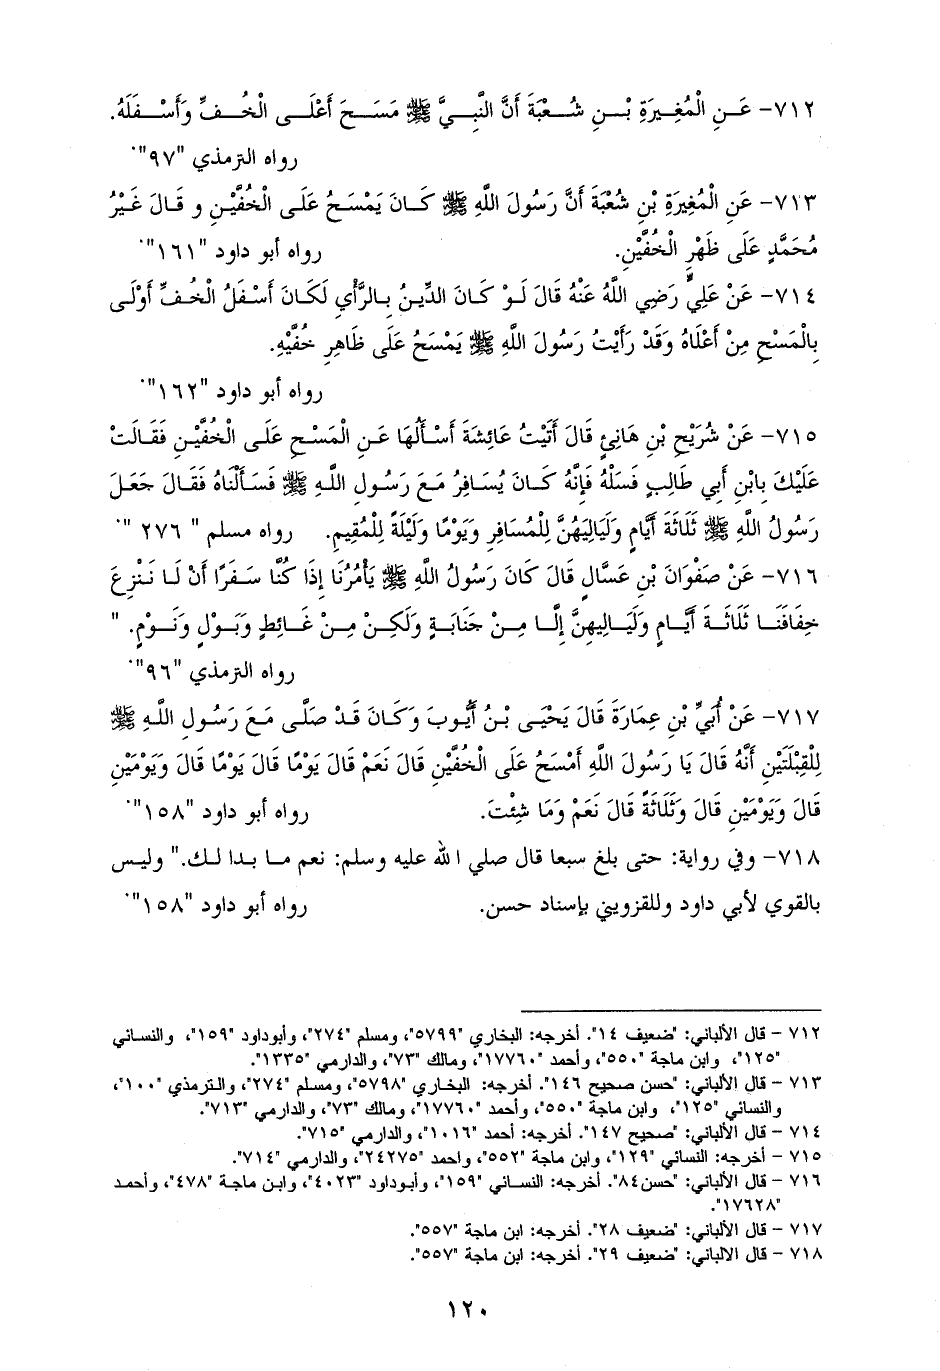 ٧١٢– عَنِ الْمُغِيرَةِ بْنِ شُعْبَةَ أَنَّ النَّبِيَّ ﷺ مَسَحَ أَعْلَى الْخُفِّ وَأَسْفَلَهُ.
رواه الترمذي "٩٧".
٧١٣– عَنِ الْمُغِيرَةِ بْنِ شُعْبَةَ أَنَّ رَسُولَ اللَّهِ ﷺ كَانَ يَمْسَحُ عَلَى الْخُفَّيْنِ و قَالَ غَيْرُ
مُحَمَّدٍ عَلَى ظَهْرِ الْخُفَّيْنِ. رواه أبو داود "١٦١".
٧١٤– عَنْ عَلِيٍّ رَضِيَ اللَّهُ عَنْهُ قَالَ لَوْ كَانَ الدِّينُ بِالرَّأْيِ لَكَانَ أَسْفَلُ الْخُفِّ أَوْلَى
بِالْمَسْحِ مِنْ أَعْلَاهُ وَقَدْ رَأَيْتُ رَسُولَ اللَّهِ ﷺ يَمْسَحُ عَلَى ظَاهِرِ خُفَّيْهِ.
رواه أبو داود "١٦٢".
٧١٥– عَنْ شُرَيْحِ بْنِ هَانِئٍ قَالَ أَتَيْتُ عَائِشَةَ أَسْأَلُهَا عَنِ الْمَسْحِ عَلَى الْخُفَّيْنِ فَقَالَتْ
عَلَيْكَ بِابْنِ أَبِي طَالِبٍ فَسَلْهُ فَإِنَّهُ كَانَ يُسَافِرُ مَعَ رَسُولِ اللَّهِ ﷺ فَسَأَلْنَاهُ فَقَالَ جَعَلَ
رَسُولُ اللَّهِ ﷺ ثَلَاثَةَ أَيَّامٍ وَلَيَالِيَهُنَّ لِلْمُسَافِرِ وَيَوْمًا وَلَيْلَةً لِلْمُقِيمِ. رواه مسلم " ٢٧٦ ".
٧١٦– عَنْ صَفْوَانَ بْنِ عَسَّالٍ قَالَ كَانَ رَسُولُ اللَّهِ ﷺ يَأْمُرُنَا إِذَا كُنَّا سَفَرًا أَنْ لَا نَنْزِعَ
خِفَافَنَا ثَلَاثَةَ أَيَّامٍ وَلَيَالِيهِنَّ إِلَّا مِنْ جَنَابَةٍ وَلَكِنْ مِنْ غَائِطٍ وَبَوْلٍ وَنَوْمٍ. "
رواه الترمذي "٩٦".
٧١٧– عَنْ أُبَيِّ بْنِ عِمَارَةَ قَالَ يَحْيَى بْنُ أَيُّوبَ وَكَانَ قَدْ صَلَّى مَعَ رَسُولِ اللَّهِ ﷺ
لِلْقِبْلَتَيْنِ أَنَّهُ قَالَ يَا رَسُولَ اللَّهِ أَمْسَحُ عَلَى الْخُفَّيْنِ قَالَ نَعَمْ قَالَ يَوْمًا قَالَ يَوْمًا قَالَ وَيَوْمَيْنِ
قَالَ وَيَوْمَيْنِ قَالَ وَثَلَاثَةً قَالَ نَعَمْ وَمَا شِئْتَ. رواه أبو داود "١٥٨".
٧١٨– وفي رواية: حتى بلغ سبعا قال صلي الله عليه وسلم: نعم ما بدا لك." وليس
بالقوي لأبي داود وللقزويني بإسناد حسن. رواه أبو داود "١٥٨".
٧١٢ – قال الألباني: "ضعيف ١٤". أخرجه: البخاري "٥٧٩٩"، ومسلم "٢٧٤"، وأبوداود "١٥٩"، والنسائي
"١٢٥"، وابن ماجة "٥٥٠"، وأحمد "١٧٧٦٠"، ومالك "٧٣"، والدارمي "١٣٣٥".
٧١٣ – قال الألباني: "حسن صحيح ١٤٦". أخرجه: البخاري "٥٧٩٨"، ومسلم "٢٧٤"، والترمذي "١٠٠"،
والنسائي "١٢٥"، وابن ماجة "٥٥٠"، وأحمد "١٧٧٦٠"، ومالك "٧٣"، والدارمي "٧١٣".
٧١٤ – قال الألباني: "صحيح ١٤٧". أخرجه: أحمد "١٠١٦"، والدارمي "٧١٥".
٧١٥ – أخرجه: النسائي "١٢٩"، وابن ماجة "٥٥٢"، واحمد "٢٤٢٧٥"، والدارمي "٧١٤".
٧١٦ – قال الألباني: "حسن٨٤". أخرجه: النسائي "١٥٩"، وأبوداود "٤٠٢٣"، وابن ماجة "٤٧٨"، وأحمد
"١٧٦٢٨".
٧١٧ – قال الألباني: "ضعيف ٢٨". أخرجه: ابن ماجة "٥٥٧".
٧١٨ – قال الالباني: "ضعيف ٢٩". أخرجه: ابن ماجة "٥٥٧".
١٢٠